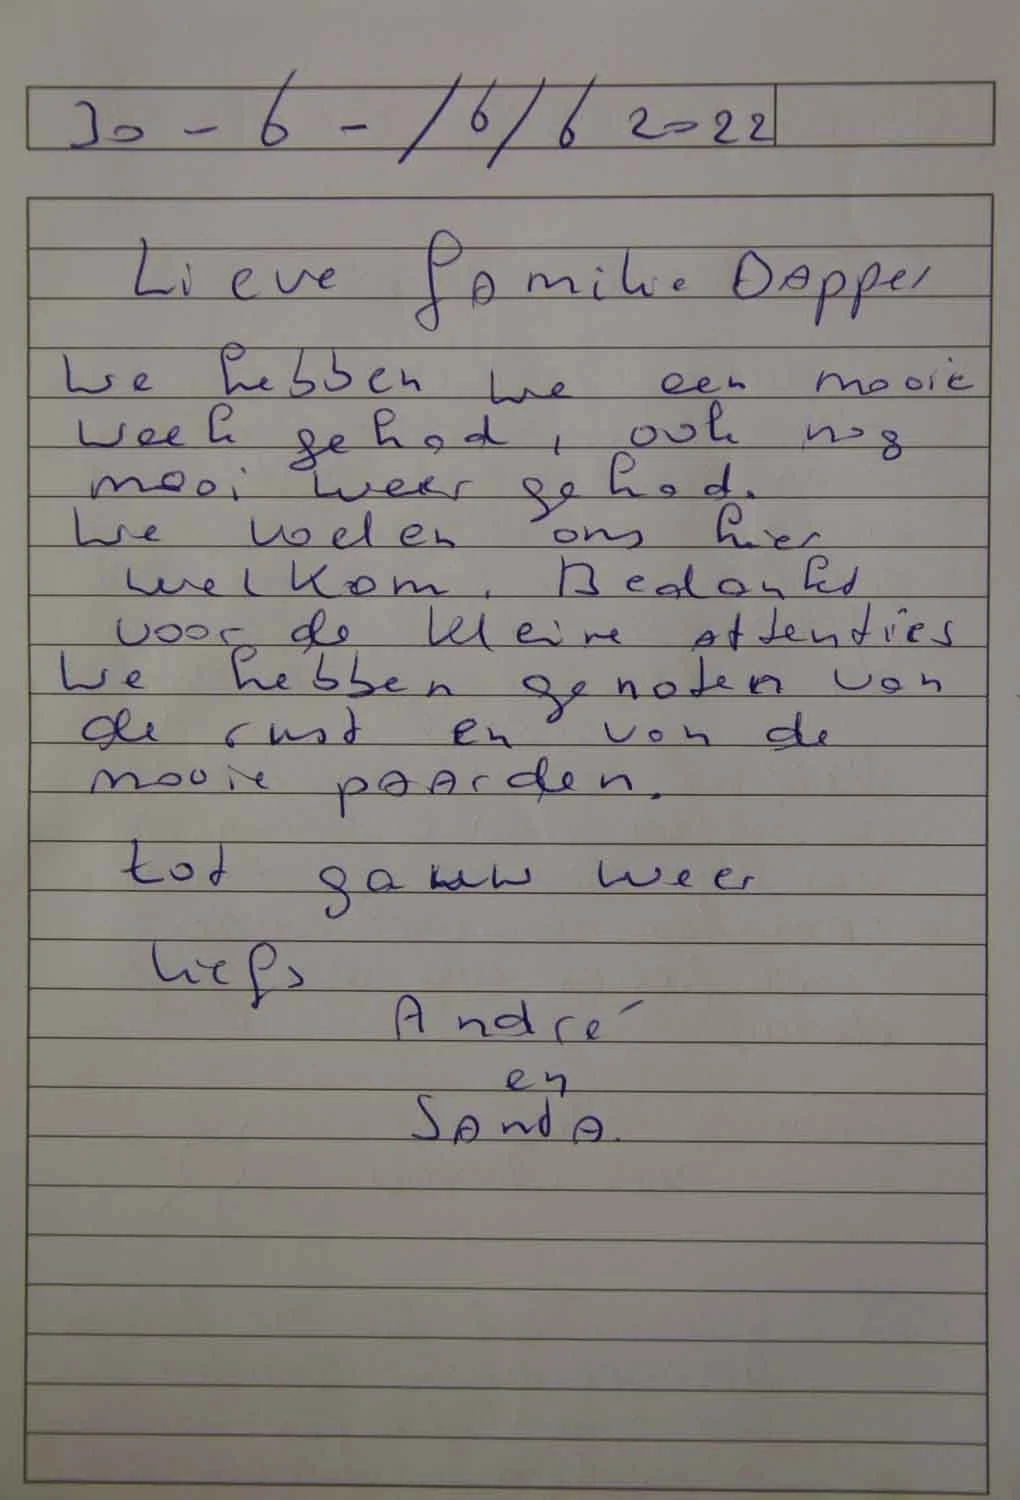 30 - 6 - /6/6 2022
Lieve familie Dapper
We hebben we een mooie
week gehad, ook nog
mooi weer gehad.
We voelen ons hier
welkom. Bedankt
voor de kleine attenties
We hebben genoten van
de rust en van de
mooie paarden.
tot gauw weer
liefs
André
en
Sanda.